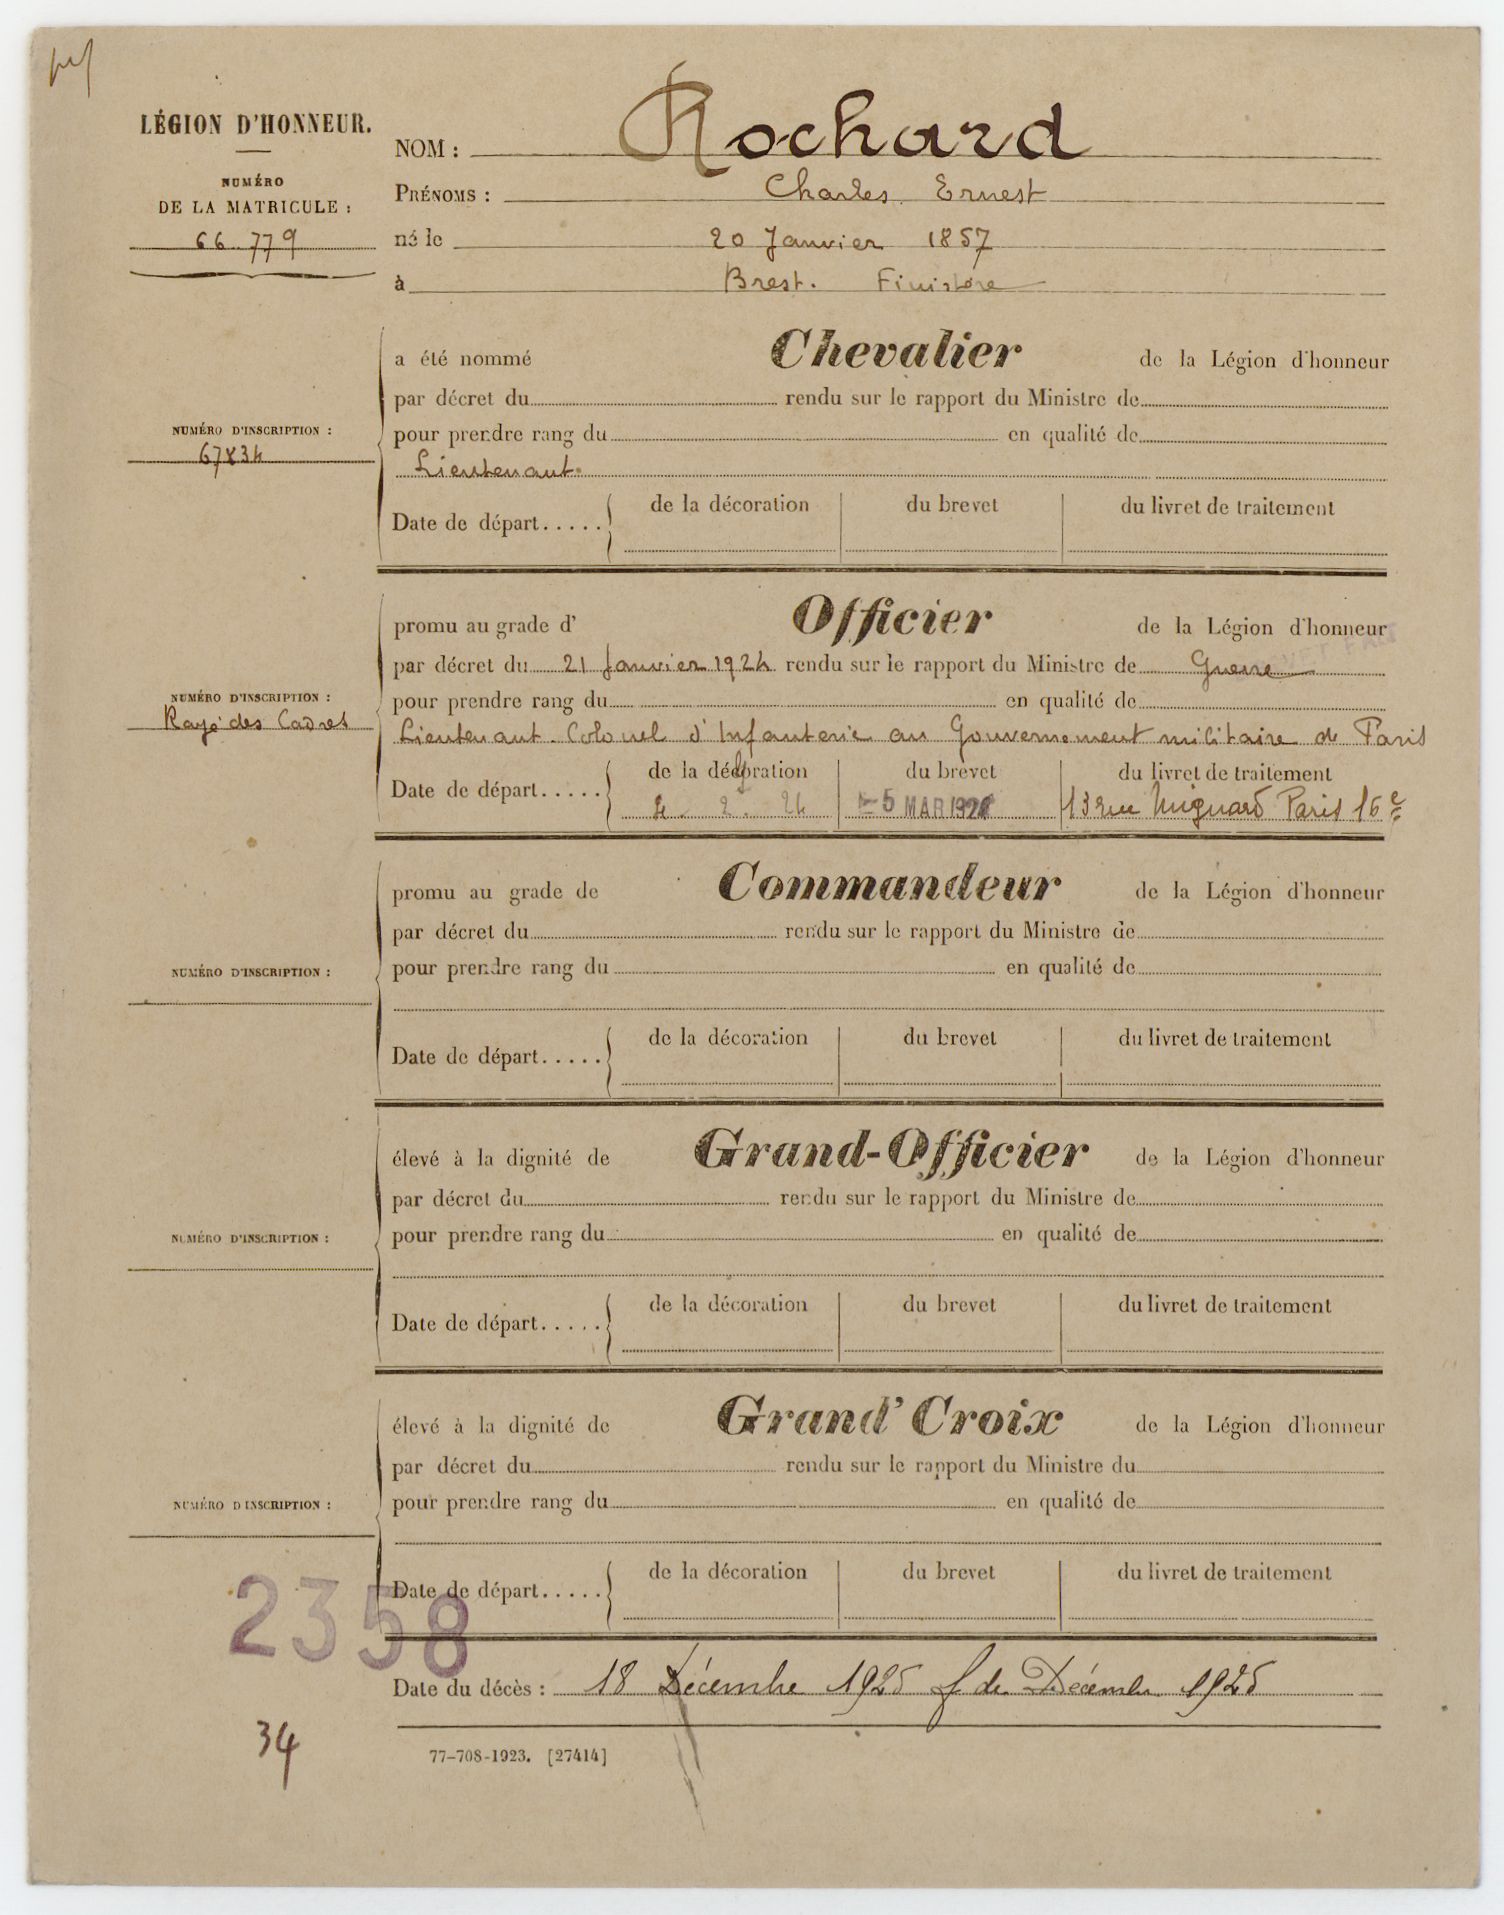 LÉGION D'HONNEUR.
NUMÉRO
DE LA MATRICULE :
66.779
NOM : Rochard
PRÉNOMS : Charles Ernest
né le 20 Janvier 1857
à Brest. Finistère
a été nommé Chevalier de la Légion d'honneur
par décret du rendu sur le rapport du Ministre de
pour prendre rang du en qualité de
NUMÉRO D'INSCRIPTION :
67834
Lieutenant.
Date de départ..... de la décoration du brevet du livret de traitement
promu au grade d' Officier de la Légion d'honneur
par décret du 21 Janvier 1924 rendu sur le rapport du Ministre de Guerre
NUMÉRO D'INSCRIPTION :
Rayé des Cadres
pour prendre rang du en qualité de
Lieutenant-Colonel d'Infanterie au Gouvernement militaire de Paris
Date de départ..... de la décoration du brevet du livret de traitement
4. 2. 24 5 MAR 1924 13 rue Mignard Paris 16e
promu au grade de Commandeur de la Légion d'honneur
par décret du rendu sur le rapport du Ministre de
pour prendre rang du en qualité de
NUMÉRO D'INSCRIPTION :
Date de départ..... de la décoration du brevet du livret de traitement
élevé à la dignité de Grand-Officier de la Légion d'honneur
par décret du rendu sur le rapport du Ministre de
pour prendre rang du en qualité de
NUMÉRO D'INSCRIPTION :
Date de départ..... de la décoration du brevet du livret de traitement
élevé à la dignité de Grand'Croix de la Légion d'honneur
par décret du rendu sur le rapport du Ministre du
pour prendre rang du en qualité de
NUMÉRO D'INSCRIPTION :
Date de départ..... de la décoration du brevet du livret de traitement
2358
Date du décès : 18 Décembre 1925 f de Décembre 1925
34
77-708-1923. [27414]